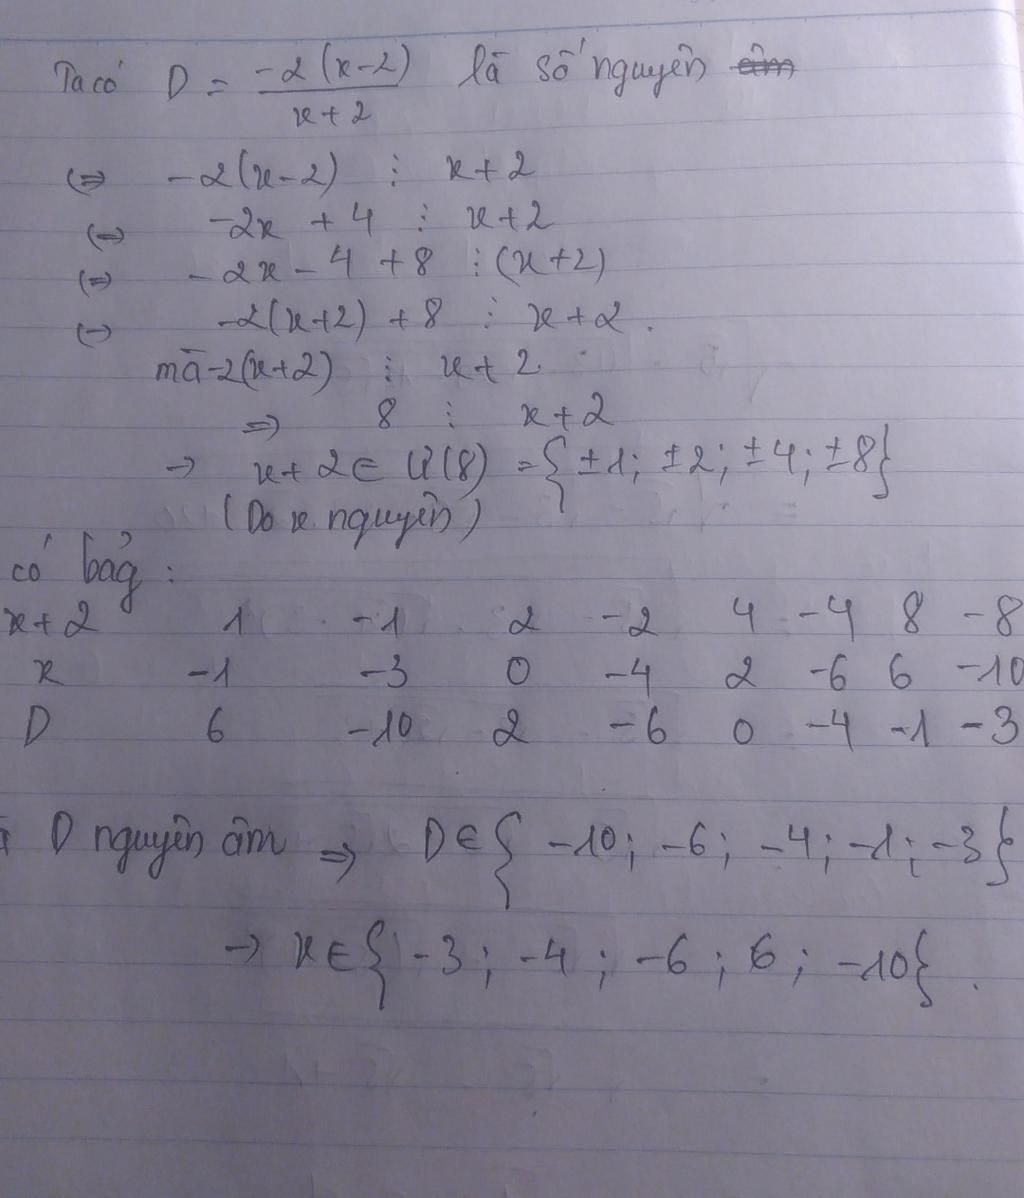 Ta có D = -2(x-2)/x+2 là số nguyên âm
(=> -2(x-2) ⋮ x+2
(-> -2x + 4 ⋮ x+2
(=) -2x - 4 + 8 ⋮ (x+2)
(-) -2(x+2) + 8 ⋮ x+2.
mà -2(x+2) ⋮ x+2
=> 8 ⋮ x+2
-> x+2 ∈ Ư(8) = {±1; ±2; ±4; ±8}
(Do x nguyên)
có bảg :
x+2 1 -1 2 -2 4 -4 8 -8
x -1 -3 0 -4 2 -6 6 -10
D 6 -10 2 -6 0 -4 -1 -3
D nguyên âm => D ∈ { -10; -6; -4; -1; -3}
-> x ∈ { -3; -4; -6; 6; -10}.